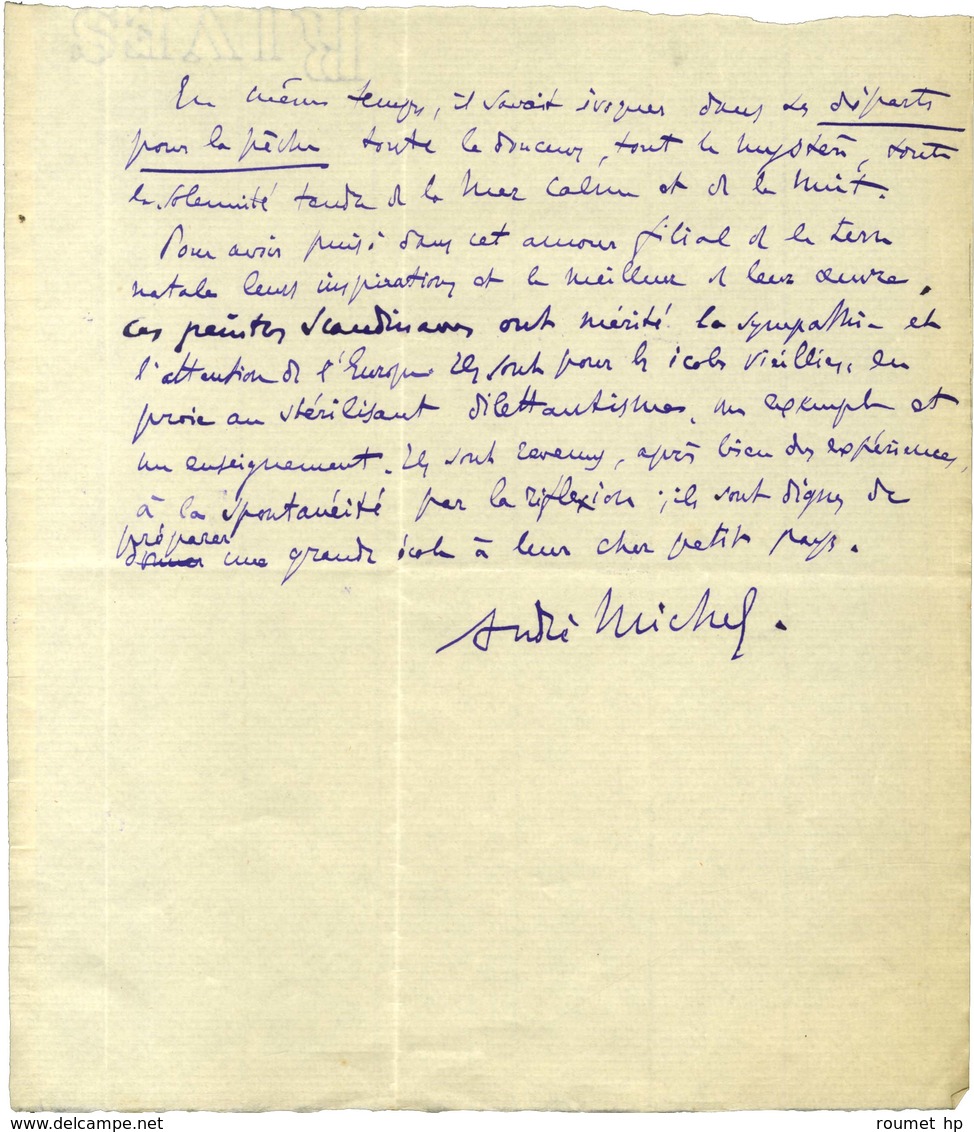 RIVES
En même temps, il savait évoquer dans ses départs
pour la pêche toute la douceur, tout le mystère, toute
la solennité tendre de la mer calme et de la nuit.
Pour avoir puisé dans cet amour filial de la terre
natale leurs inspirations et le meilleur de leur œuvre,
ces peintres scandinaves ont mérité la sympathie et
l'attention de l'Europe. Ils sont pour les écoles vieillies, en
proie au stérilisant dilettantisme, un exemple et
un enseignement. Ils sont revenus, après bien des expériences,
à la spontanéité par la réflexion ; ils sont dignes de
préparer
donner une grande école à leur cher petit pays.
André Michel.
www.delcampe.net
roumet hp